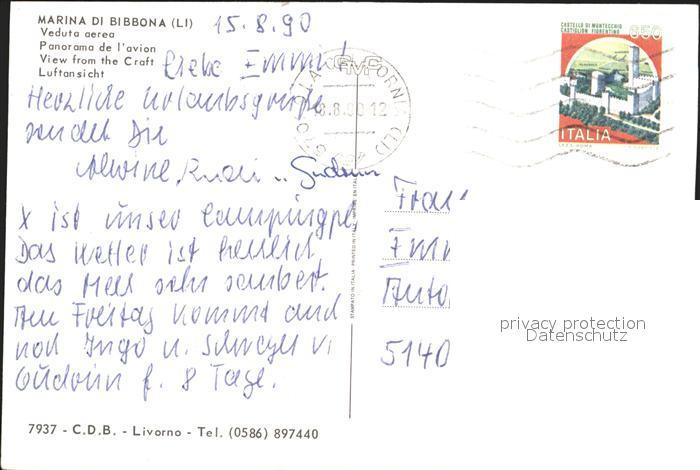 MARINA DI BIBBONA (LI)
Veduta aerea
Panorama de l'avion
View from the Craft
Luftansicht
15.8.90
Liebe Emmi!
Herzliche Urlaubsgrüße
sendet Dir
Alwine, Rudi u. Gudrun
X ist unser Campingpl.
Das Wetter ist herrlich,
das Meer sehr sauber.
Am Freitag kommt auch
noch Ingo u. Schwager v.
Gudrun f. 8 Tage.
7937 - C.D.B. - Livorno - Tel. (0586) 897440
STAMPATO IN ITALIA - PRINTED IN ITALY
CASTELLO DI MONTECCHIO
CASTIGLION FIORENTINO
850
ITALIA
8.90 12
(LI)
Frau
Emm
Auto
5140
privacy protection
Datenschutz